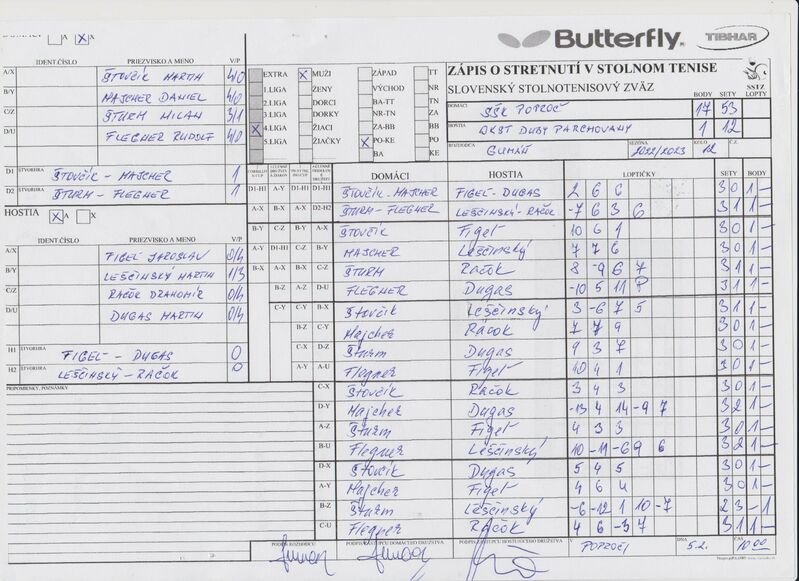 Butterfly
TIBHAR
A X A
IDENT.ČÍSLO PRIEZVISKO A MENO V/P
A/X ŠTOVČÍK MARTIN 4/0
B/Y MAJCHER DANIEL 4/0
C/Z ŠTURM MILAN 3/1
D/U FLEGNER RUDOLF 4/0
D1 ŠTVORHRA ŠTOVČÍK - MAJCHER 1
D2 ŠTVORHRA ŠTURM - FLEGNER 1
HOSTIA X A X
IDENT.ČÍSLO PRIEZVISKO A MENO V/P
A/X FIGEĽ JAROSLAV 0/4
B/Y LEŠČINSKÝ MARTIN 1/3
C/Z RAČOK DRAHOMÍR 0/4
D/U DUGAS MARTIN 0/4
H1 ŠTVORHRA FIGEĽ - DUGAS 0
H2 ŠTVORHRA LEŠČINSKÝ - RAČOK 0
PRIPOMIENKY, POZNÁMKY
EXTRA X MUŽI ZÁPAD TT
1.LIGA ŽENY VÝCHOD NR
2.LIGA DORCI BA-TT TN
3.LIGA DORKY NR-TN ZA
X 4.LIGA ŽIACI ZA-BB BB
5.LIGA ŽIAČKY X PO-KE PO
BA KE
ZÁPIS O STRETNUTÍ V STOLNOM TENISE
SLOVENSKÝ STOLNOTENISOVÝ ZVÄZ
SSTZ
BODY SETY LOPTY
DOMÁCI SŠK POPROČ 17 53
HOSTIA OKST DUBY PARCHOVANY 1 12
ROZHODCA GUMÁŇ SEZÓNA 2022/2023 KOLO 12 Č.Z.
DOMÁCI HOSTIA LOPTIČKY SETY BODY
D1-H1 A-Y D1-H1 D1-H1 ŠTOVČÍK - MAJCHER FIGEĽ - DUGAS 2 6 6 3 0 1 -
A-X B-X A-X D2-H2 ŠTURM - FLEGNER LEŠČINSKÝ - RAČOK -7 6 3 6 3 1 1 -
B-Y C-Z B-Y A-X ŠTOVČÍK Figeľ 10 6 1 3 0 1 -
A-Y D1-H1 C-Z B-Y MAJCHER Leščinský 7 7 6 3 0 1 -
B-X A-X B-X C-Z ŠTURM Račok 8 -9 6 7 3 1 1 -
B-Z A-Z D-U FLEGNER Dugas -10 5 11 8 3 1 1 -
C-Y C-Y B-X Štovčík Leščinský 3 -6 7 5 3 1 1 -
B-Z C-Y Majcher Račok 7 7 9 3 0 1 -
C-X D-Z Šturm Dugas 9 3 7 3 0 1 -
A-Y A-U Flegner Figeľ 10 4 1 3 0 1 -
C-X Štovčík Račok 3 4 3 3 0 1 -
D-Y Majcher Dugas -13 4 14 -9 7 3 2 1 -
A-Z Šturm Figeľ 4 3 3 3 0 1 -
B-U Flegner Leščinský 10 -11 -6 9 6 3 2 1 -
D-X Štovčík Dugas 5 4 5 3 0 1 -
A-Y Majcher Figeľ 4 6 4 3 0 1 -
B-Z Šturm Leščinský -6 -12 1 10 -7 2 3 - 1
C-U Flegner Račok 4 6 -3 7 3 1 1 -
PODPIS ROZHODCU PODPIS ZÁSTUPCU DOMÁCEHO DRUŽSTVA PODPIS ZÁSTUPCU HOSŤUJÚCEHO DRUŽSTVA V POPROČI DŇA 5.2. ČAS 10.00